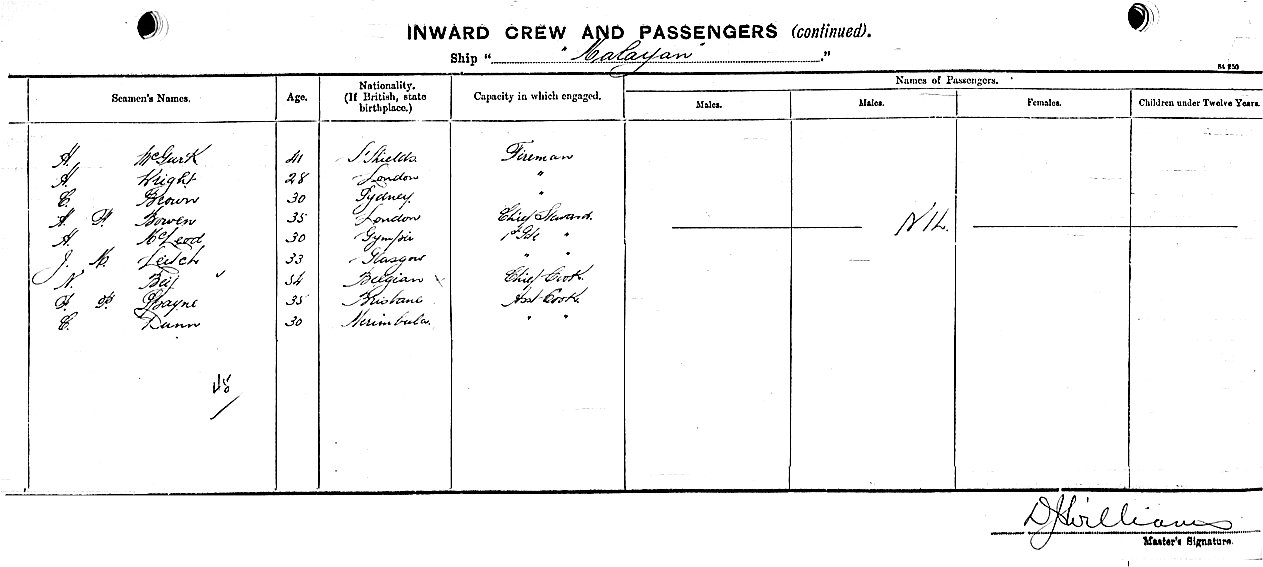 INWARD CREW AND PASSENGERS (continued).
Ship " "Malayan" ."
84 250
Seamen's Names. Age. Nationality. (If British, state birthplace.) Capacity in which engaged. Names of Passengers.
Males. Males. Females. Children under Twelve Years.
A. McGurk 41 S' Shields Fireman
A. Wright 28 London "
C. Brown 30 Sydney "
A. F. Bowen 35 London Chief Steward. NIL.
A. McLeod 30 Gympie "
J. Leitch 33 Glasgow " "
N. 54 Belgian Chief Cook.
F. 35 Brisbane Asst Cook.
C. Dunn 30 Merimbula. " "
48
D J Williams
Master's Signature.